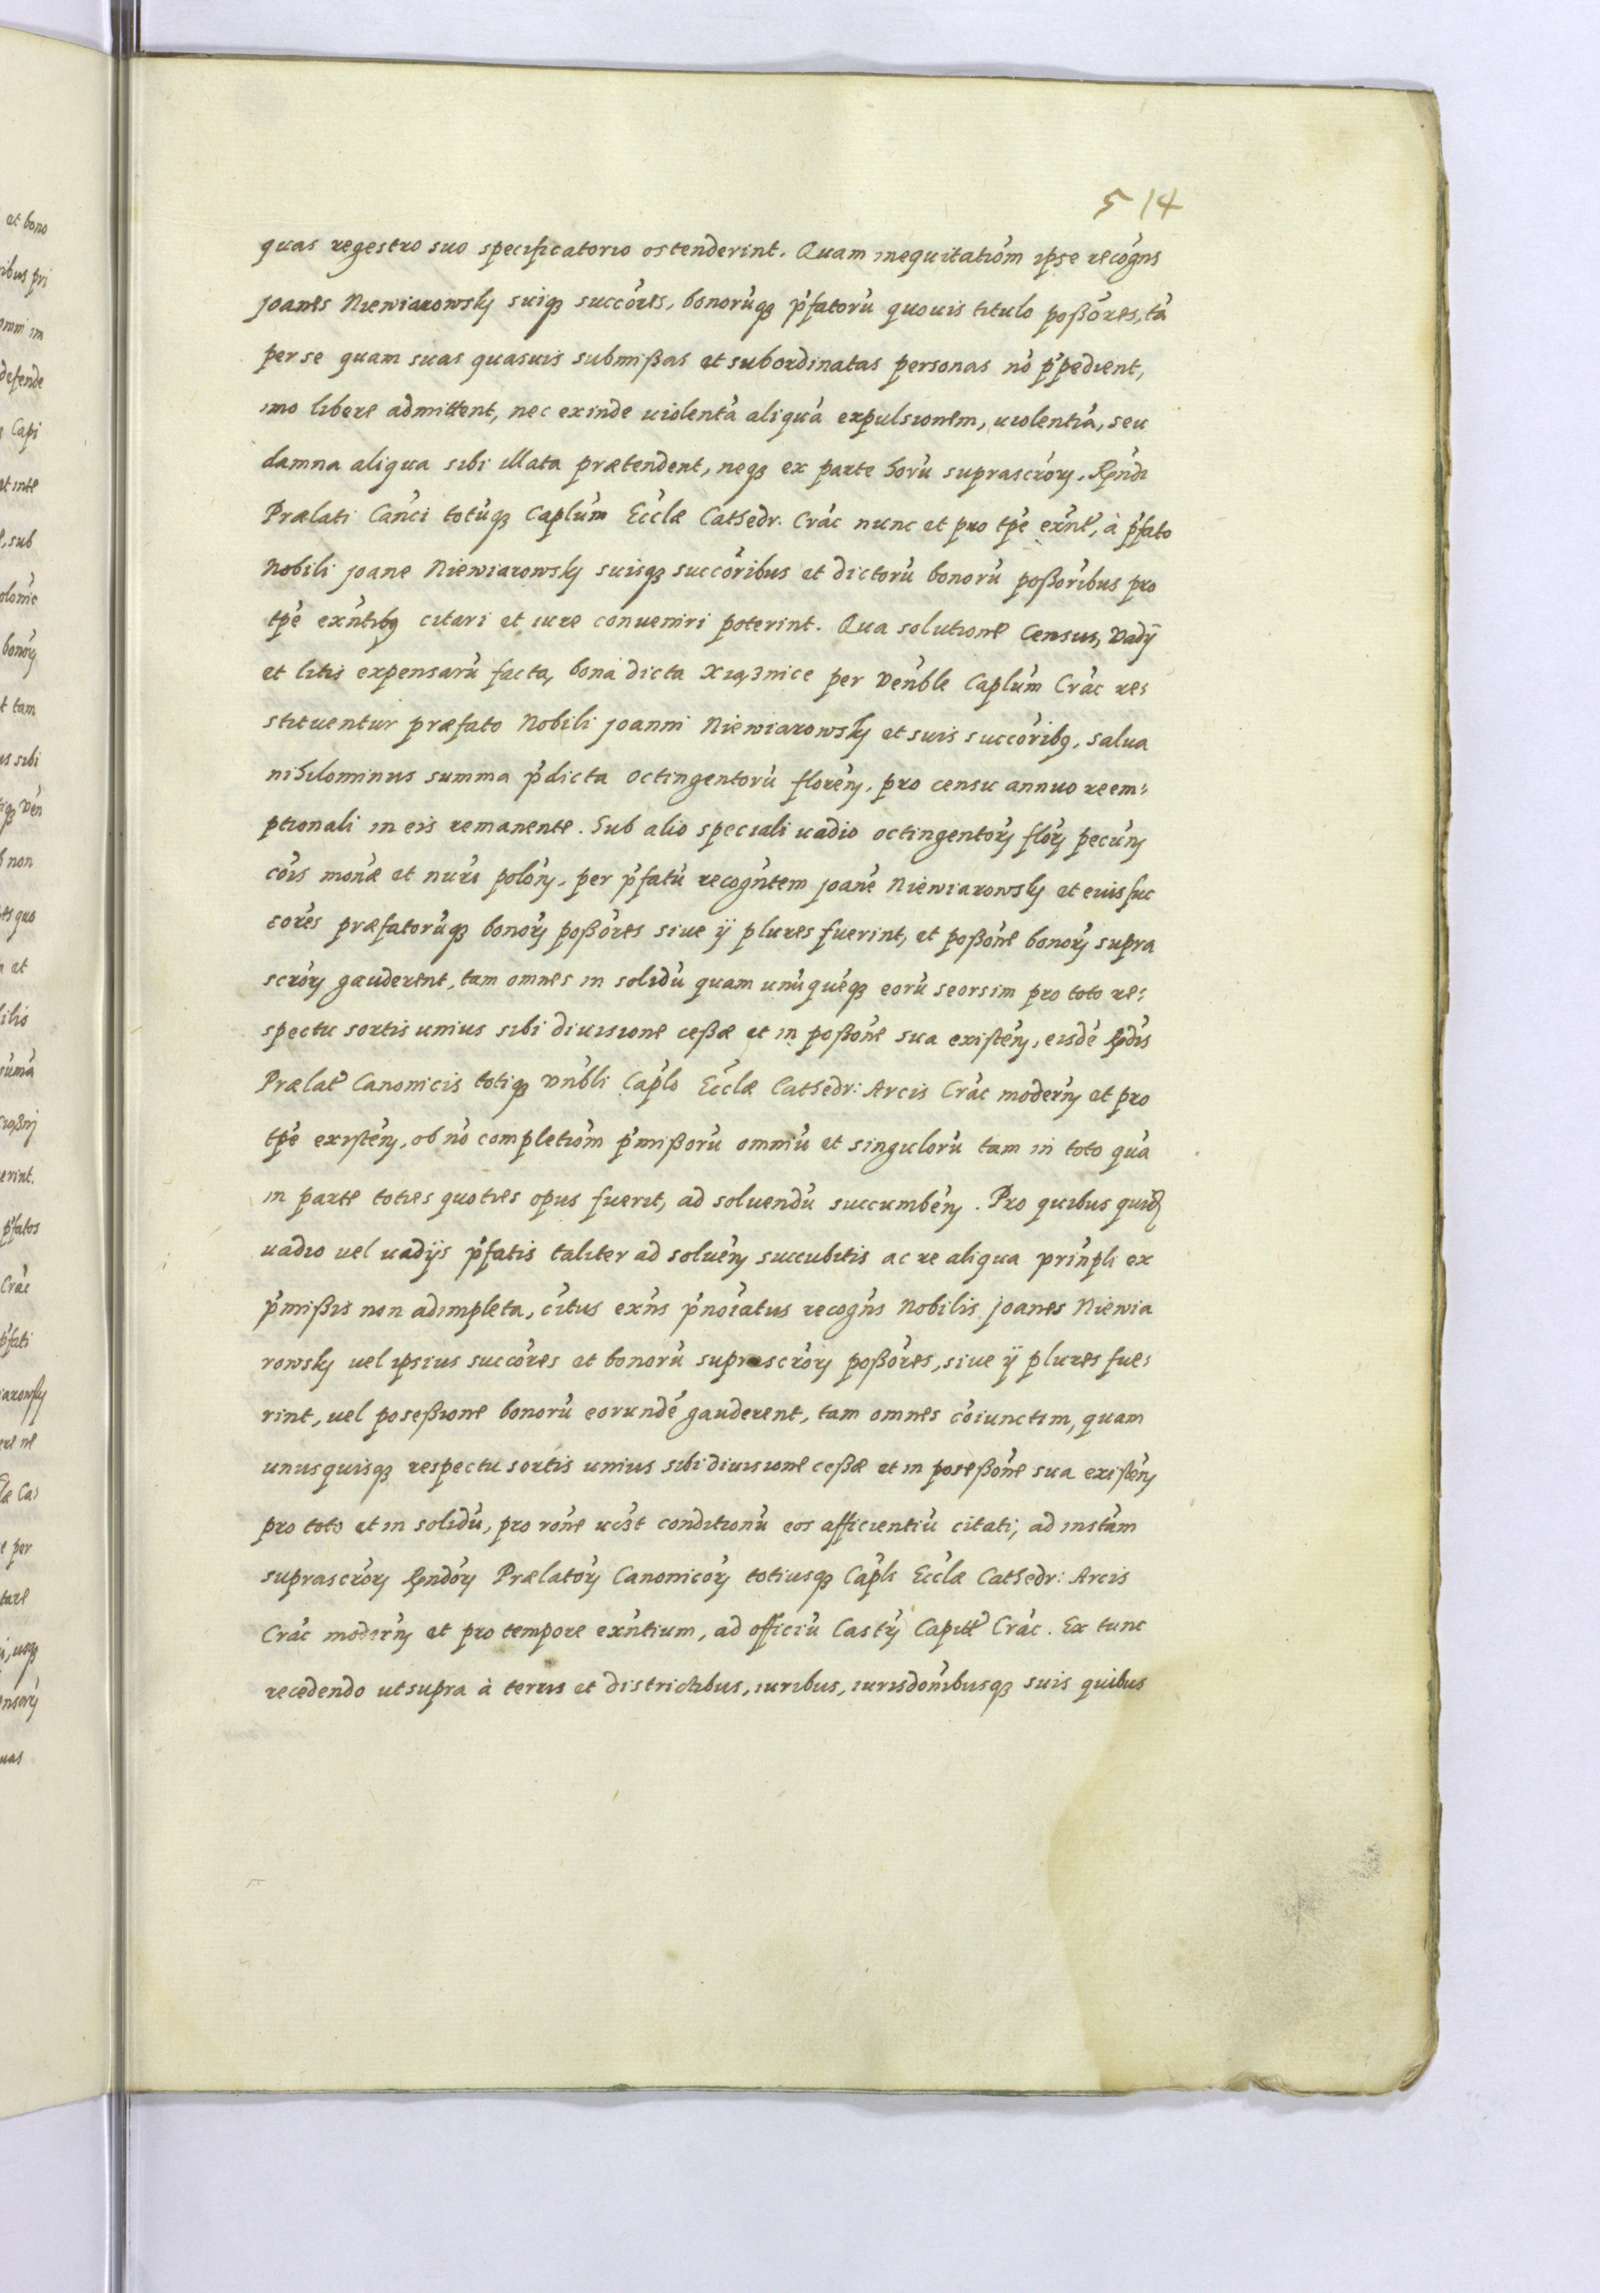 514
quas regestro suo specificatorio ostenderint. Quam inequitatiom̃ ipse recogñs
Joanes Niewiarowsky suiqȝ succóres, bonorúqȝ p̃fatorú quouis titulo poßóres, tá
per se quam suas quasuis submißas et subordinatas personas nó p̃pedient,
imo libere admittent, nec exinde uiolentá aliquá expulsionem, uiolentiá, seu
damna aliqua sibi illata prætendent, neqȝ ex parte horú suprascrór, Rndi
Prælati Cańci totúqȝ Caplúm Ecclæ Cathedr. Crác nunc et pro tpé exńt, à p̃fato
Nobili Joane Niewiarowsky suisqȝ succóribus et dictorú bonorú poßóribus pro
tpé exńtibȝ citari et iure conueniri poterint. Qua solutione Census, Vadÿ
et litis expensarú facta, bona dicta Xiąznice per Veńble Caplúm Crác re:
stituentur præfato Nobili Joanni Niewiarowsky et suis succóribȝ, salua
nihilominus summa p̃dicta octingentorú floréń, pro censu annuo reem:
ptionali in eis remanente. Sub alio speciali uadio octingentorȝ flórȝ pecúń
cóis monæ et nuri polóń, per p̃fatú recogńtem Joané Niewiarowsky et eius suc
córes præfatorúqȝ bonorȝ poßóres siue ÿ plures fuerint, et poßóne bonorȝ supra
scrórȝ gauderent, tam omnes in solidú quam unúquéqȝ eorú seorsim pro toto re:
spectu sortis unius sibi diuisione ceßæ et in poßóne sua existéń, eisdé Rdis
Prælat̃ Canonicis totiqȝ Vńbli Caplo Ecclæ Cathedr: Arcis Crác moderń et pro
tpé existéń, ob nó completióm p̃mißorú omniú et singulorú tam in toto quá
in parte toties quoties opus fuerit, ad soluendú succumbéń. Pro quibus quid
uadio uel uadijs p̃fatis taliter ad soluéń succubitis ac re aliqua prinpli ex
p̃mißis non adimpleta, cítus exńs p̃noíatus recogńs Nobilis Joanes Niewia
rowsky uel ipsius succóres et bonorú suprascrórȝ poßóres, siue ÿ plures fue:
rint, uel poseßione bonorú eorundé gauderent, tam omnes cóiunctim, quam
unusquisqȝ respectu sortis unius sibi diuisione ceßæ et in poseßóne sua existéń
pro toto et in solidú, pro róne conditionú eos afficientiú citati, ad instám
suprascrórȝ Rndórȝ Prælatórȝ Canonicórȝ totiusqȝ Capli Ecclæ Cathedr: Arcis
Crác moderń et pro tempore exńtium, ad officiú Castrȝ Capitt̃ Crác. Ex tunc
recedendo ut supra à terris et districtibus, iuribus, iurisdoníbusqȝ suis quibus